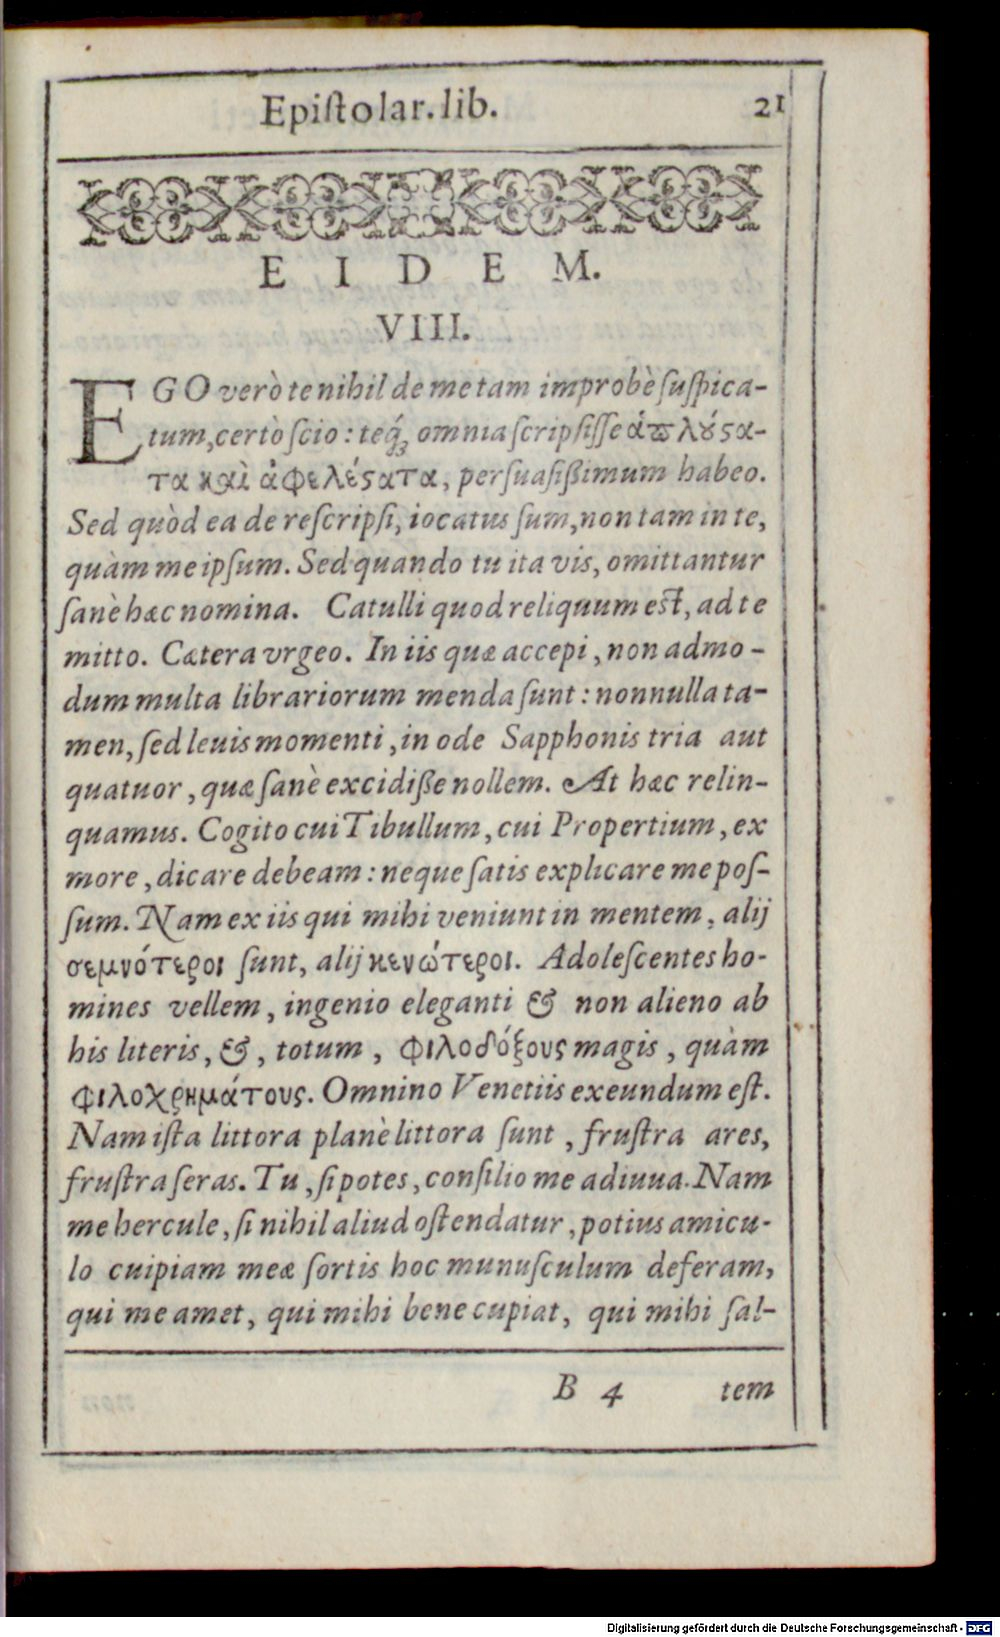 Epiſtolar. lib. 21
EIDEM.
VIII.
EGO verò te nihil de me tam improbè ſuſpica-
tum, certò ſcio: teq́₃ omnia ſcripſiſſe ἁπλούϛα-
τα καὶ ἀφελέϛατα, perſuaſißimum habeo.
Sed quòd ea de reſcripſi, iocatus ſum, non tam in te,
quàm me ipſum. Sed quando tu ita vis, omittantur
ſanè hæc nomina. Catulli quod reliquum est, ad te
mitto. Cætera vrgeo. In iis quæ accepi, non admo-
dum multa librariorum menda ſunt: nonnulla ta-
men, ſed leuis momenti, in ode Sapphonis tria aut
quatuor, quæ ſanè excidiße nollem. At hæc relin-
quamus. Cogito cui Tibullum, cui Propertium, ex
more, dicare debeam: neque ſatis explicare me poſ-
ſum. Nam ex iis qui mihi veniunt in mentem, alij
σεμνότεροι ſunt, alij κενώτεροι. Adoleſcentes ho-
mines vellem, ingenio eleganti & non alieno ab
his literis, &, totum, φιλοδόξους magis, quàm
φιλοχρημάτους. Omnino Venetiis exeundum eſt.
Nam iſta littora planè littora ſunt, fruſtra ares,
fruſtra ſeras. Tu, ſi potes, conſilio me adiuua. Nam
me hercule, ſi nihil aliud oſtendatur, potius amicu-
lo cuipiam meæ ſortis hoc munuſculum deferam,
qui me amet, qui mihi bene cupiat, qui mihi ſal-
B 4 tem
Digitalisierung gefördert durch die Deutsche Forschungsgemeinschaft - DFG